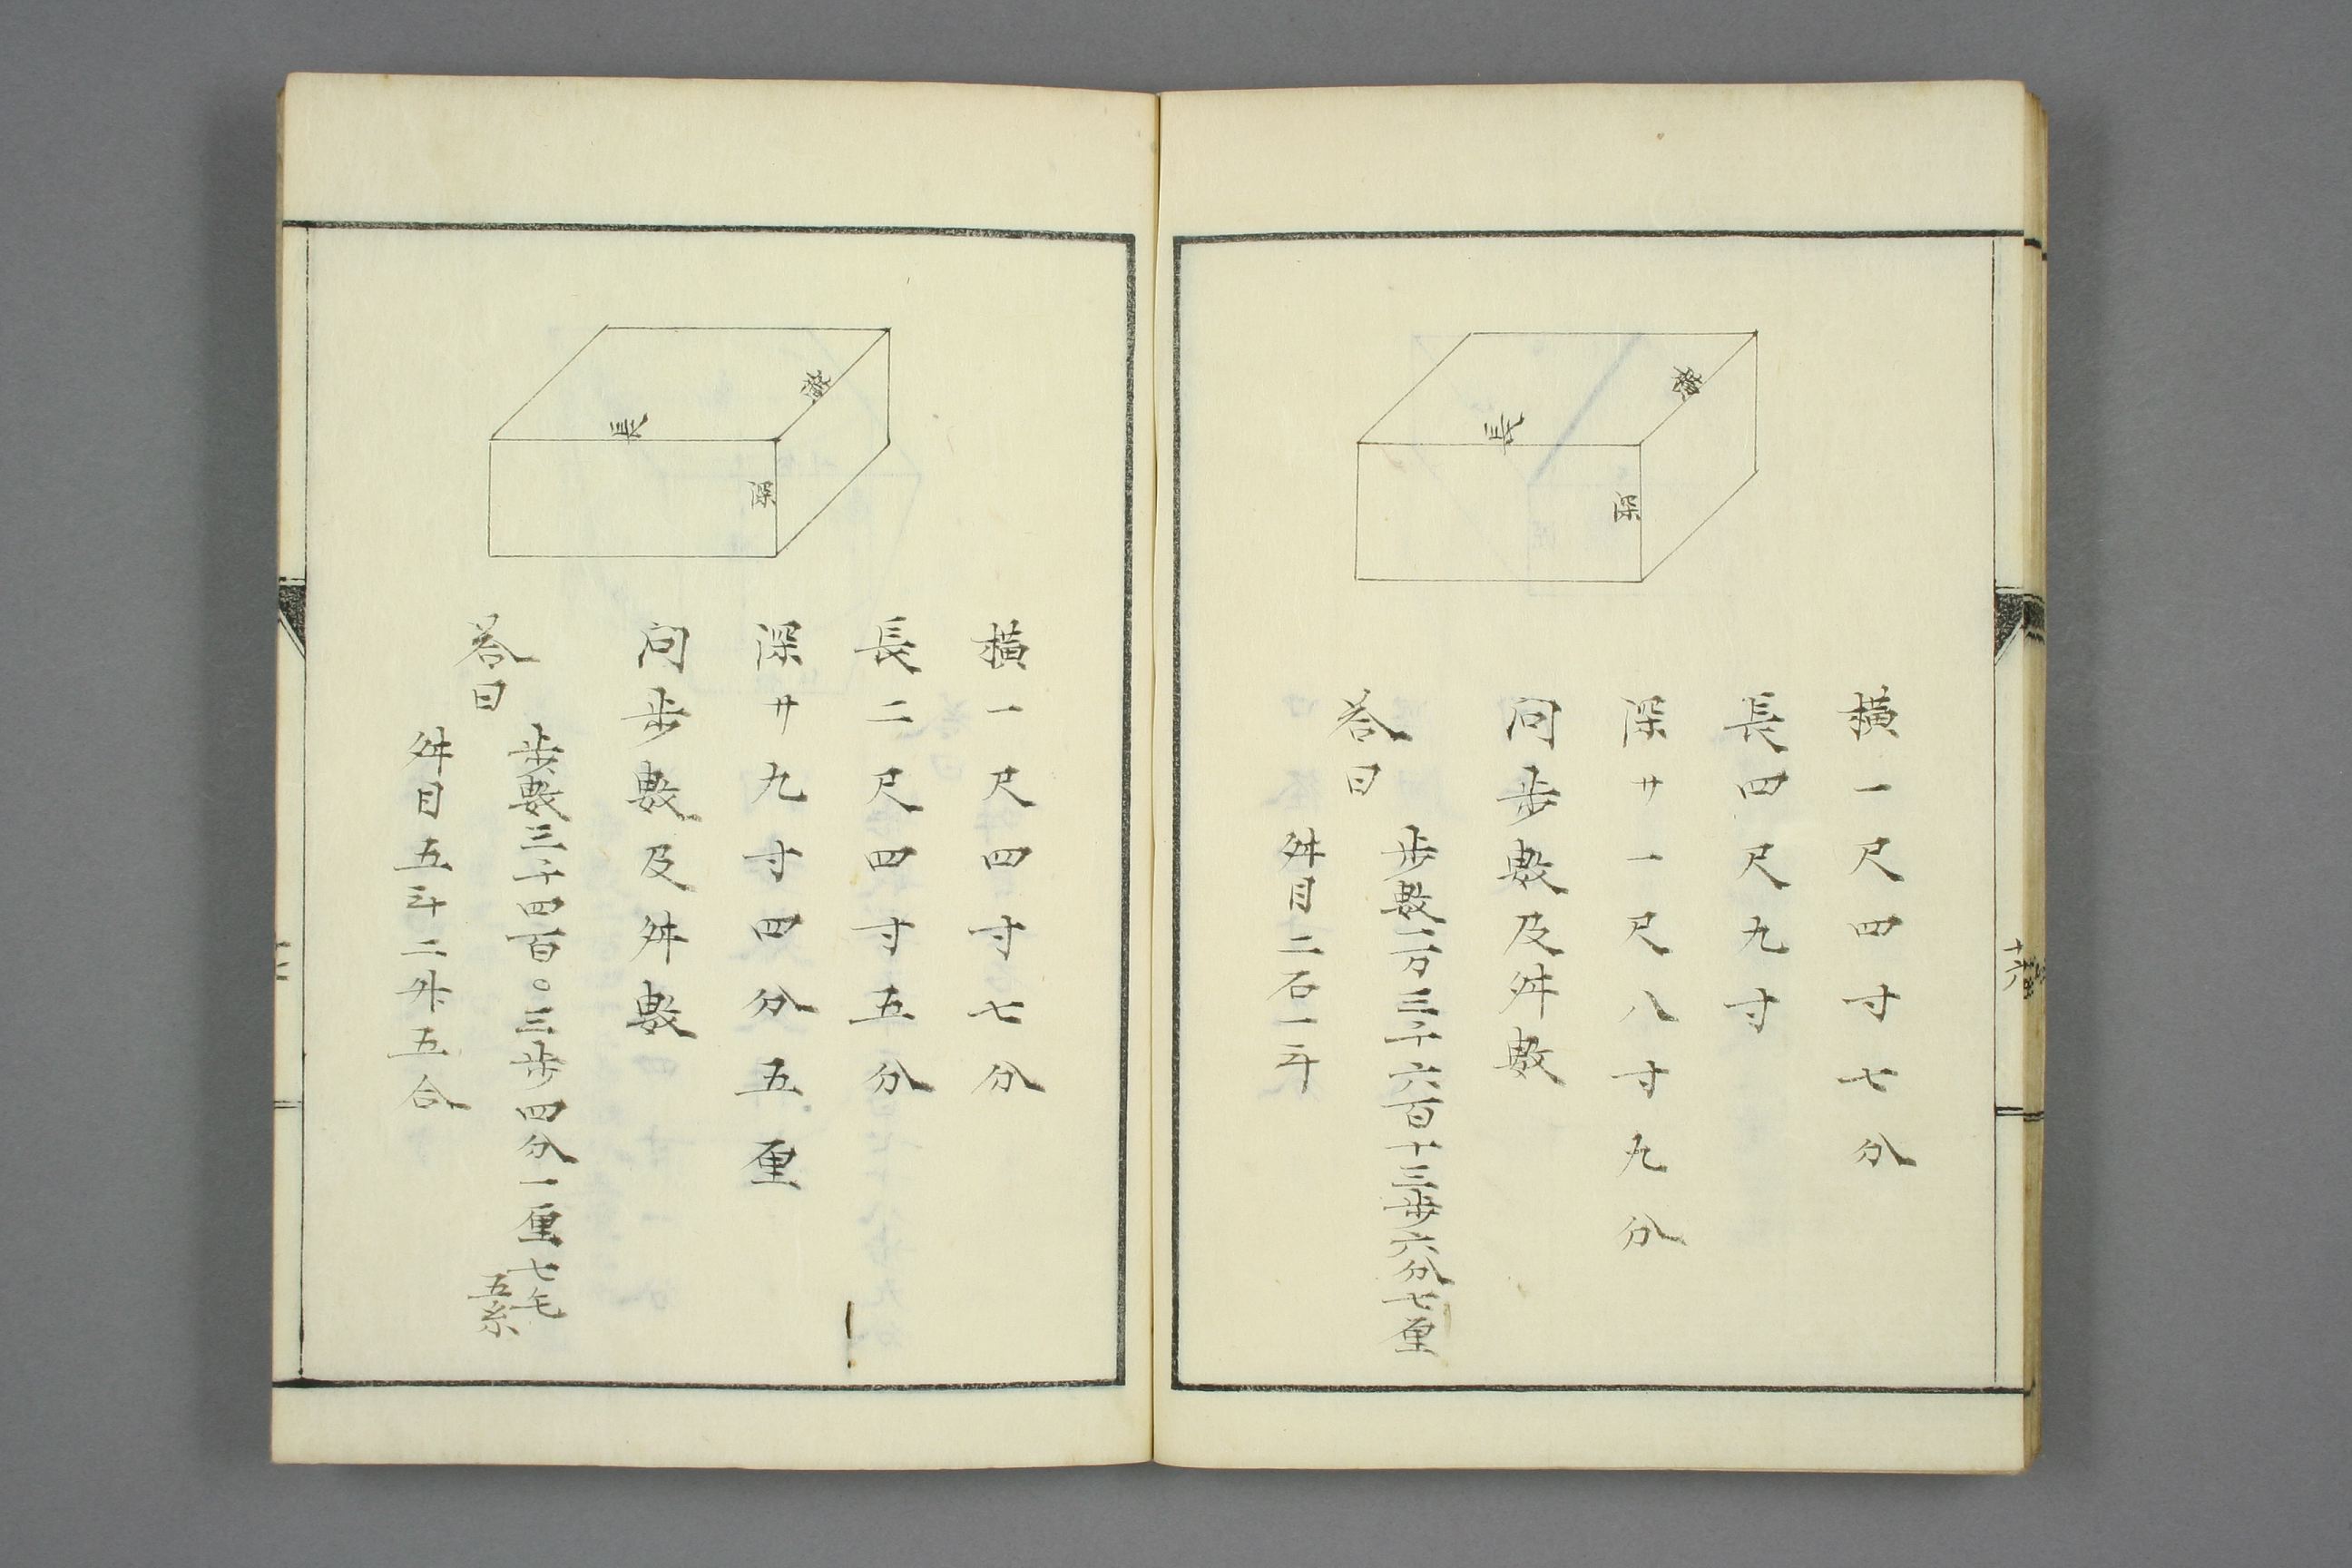 横
長
深
横一尺四寸七分
長四尺九寸
深廾一尺八寸九分
问歩數及舛數
荅曰
歩數一万三千六百十三歩六分七厘
舛目二石一斗
十六
横
長
深
横一尺四寸七分
長二尺四寸五分
深廾九寸四分五厘
问歩數及舛數
荅曰
歩數三千四百〇三歩四分一厘七毛五糸
舛目五斗二舛五合